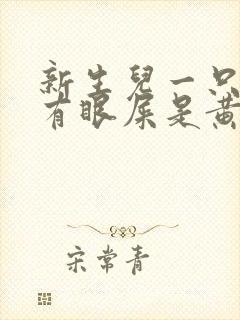 新生兒一只
有眼屎是黃
宋常青